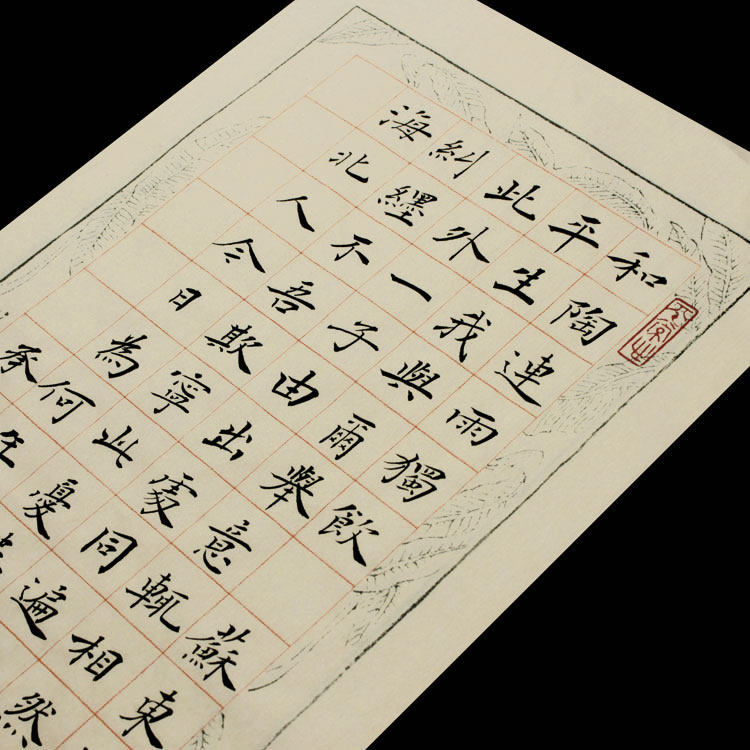 和陶連雨獨飲 蘇東
平生我與爾舉意輒相然
此外一子由出處同遍
糾纏不吾欺寧此憂
海北人今日為何